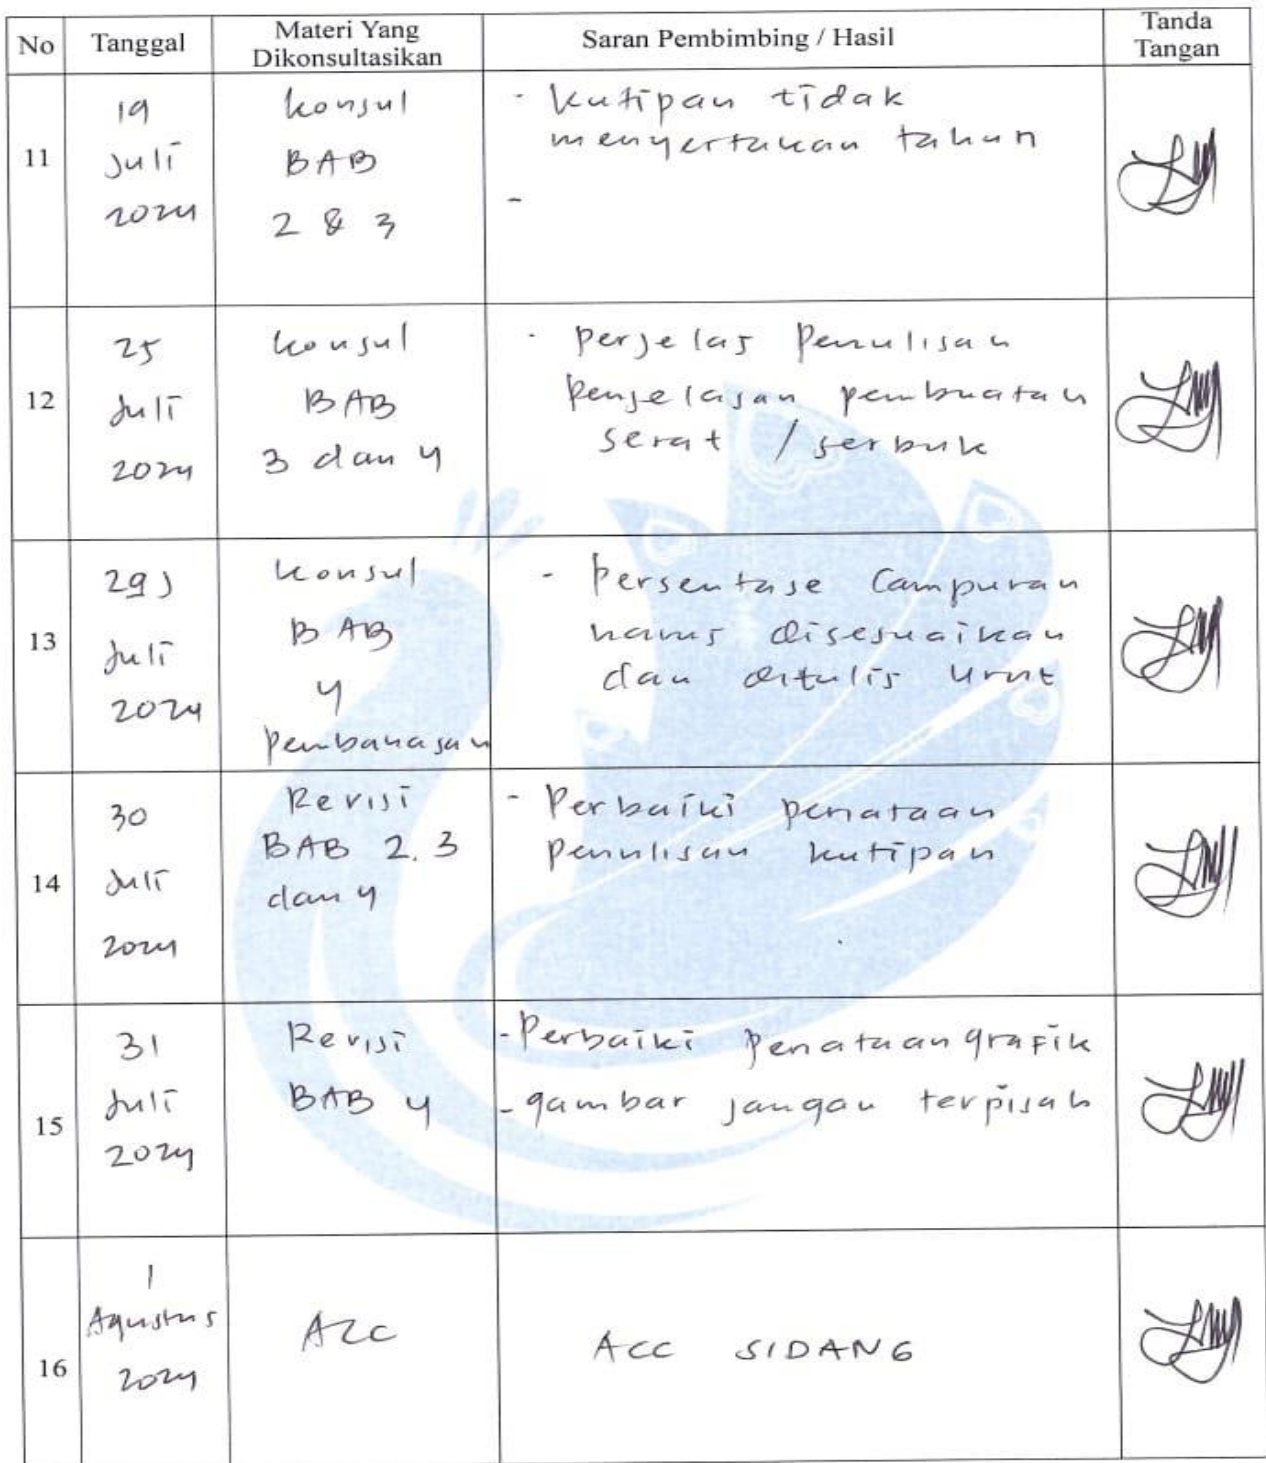 No Tanggal Materi Yang Dikonsultasikan Saran Pembimbing / Hasil Tanda Tangan
11
19
Juli
2024
Konsul
BAB
2 & 3
- Kutipan tidak
menyertakan tahun
-
12
25
Juli
2024
Konsul
BAB
3 dan 4
- Perjelas Penulisan
Penjelasan pembuatan
serat / serbuk
13
29
Juli
2024
Konsul
BAB
4
pembahasan
- Persentase Campuran
harus disesuaikan
dan ditulis urut
14
30
Juli
2024
Revisi
BAB 2.3
dan 4
- Perbaiki penataan
penulisan kutipan
15
31
Juli
2024
Revisi
BAB 4
- Perbaiki Penataan grafik
- gambar jangan terpisah
16
1
Agustus
2024
ACC
ACC SIDANG